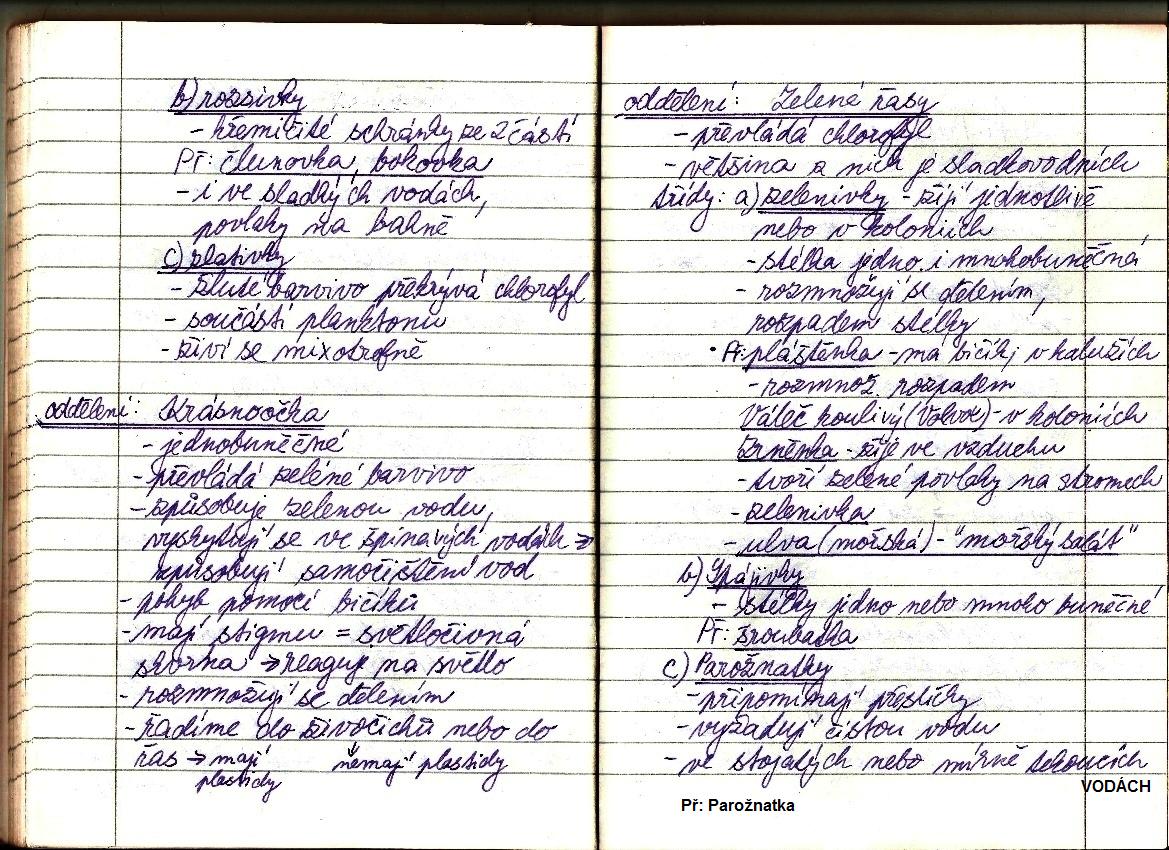 b) rozsivky
- křemičité schránky ze 2 částí
Př: člunovka, bokovka
- i ve sladkých vodách,
povlaky na bahně
c) zlativky
- žluté barvivo překrývá chlorofyl
- součástí planktonu
- živí se mixotrofně
oddělení: Krásnoočka
- jednobuněčné
- převládá zelené barvivo
- způsobuje zelenou vodu,
vyskytují se ve špinavých vodách ⇒
způsobují samočištění vod
- pohyb pomocí bičíků
- mají stigmu = světločivná
skvrna → reaguje na světlo
- rozmnožují se dělením
- řadíme do živočichů nebo do
řas → mají plastidy
nemají plastidy
oddělení: Zelené řasy
- převládá chlorofyl
- většina z nich je sladkovodních
třídy: a) zelenivky - žijí jednotlivě
nebo v koloniích
- stélka jedno i mnohobuněčná
- rozmnožují se dělením,
rozpadem stélky
• Př: pláštěnka - má bičíky, v kalužích
- rozmnož. rozpadem
Váleč koulivý (Volvox) - v koloniích
Zrněnka - žije ve vzduchu
- tvoří zelené povlaky na stromech
- zelenivka
- ulva (mořská) - "mořský salát"
b) Spájivky
- stélky jedno nebo mnoho buněčné
Př: šroubatka
c) Parožnatky
- připomínají přesličky
- vyžadují čistou vodu
- ve stojatých nebo mírně tekoucích
VODÁCH
Př: Parožnatka